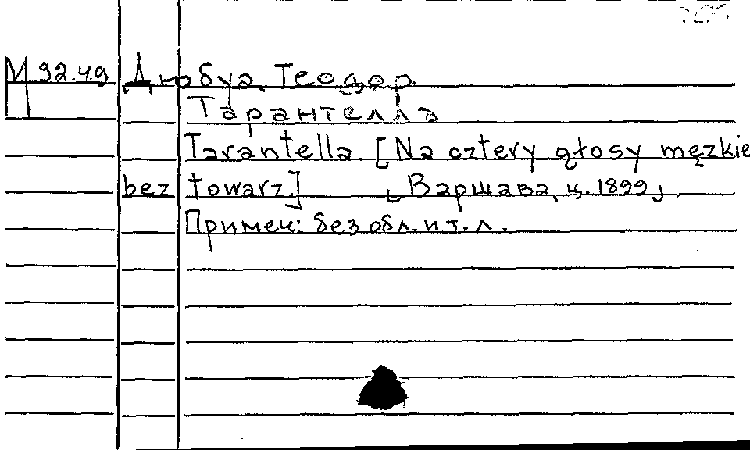 М 92.49 Дюбуа, Теодор
Тарантелла
Tarantella [Na cztery głosy męzkie
bez towarz.] [Варшава, ц. 1899]
Примеч: без обл. и т. л.